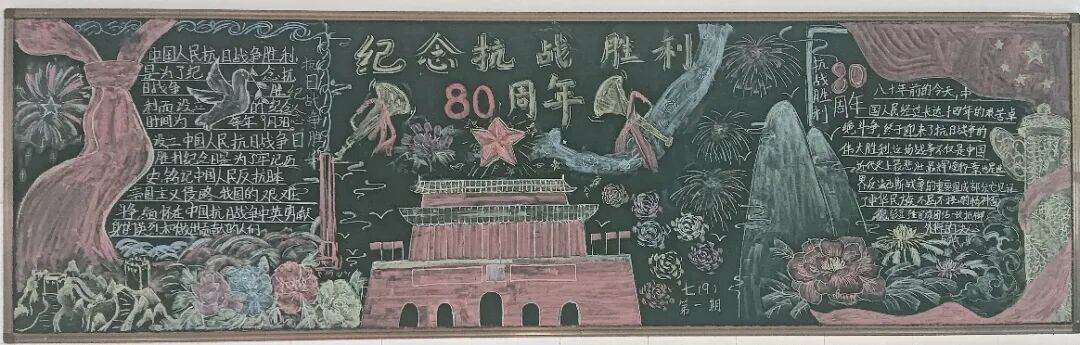 纪念抗战胜利
80周年
中国人民抗日战争胜利
是为了纪念抗
日战争胜
利而设的纪念
时间为每年9月3
设立中国人民抗日战争
胜利纪念日是为了牢记历
史铭记中国人民反抗
帝国主义侵略我国的艰难
争缅怀在中国抗日战争中英勇献
身的烈和做出贡献的人们
抗日战争胜
纪
抗战胜利
80
周年
八十年前的今天,中
国人民经过长达十四年的艰苦卓
绝斗争终于迎来了抗日战争的
伟大胜利这场战争不仅是中国
近代史上
界反法西斯战争的重要组成部分它见证
了中华民族不屈不挠的精神
七(9)
第一期